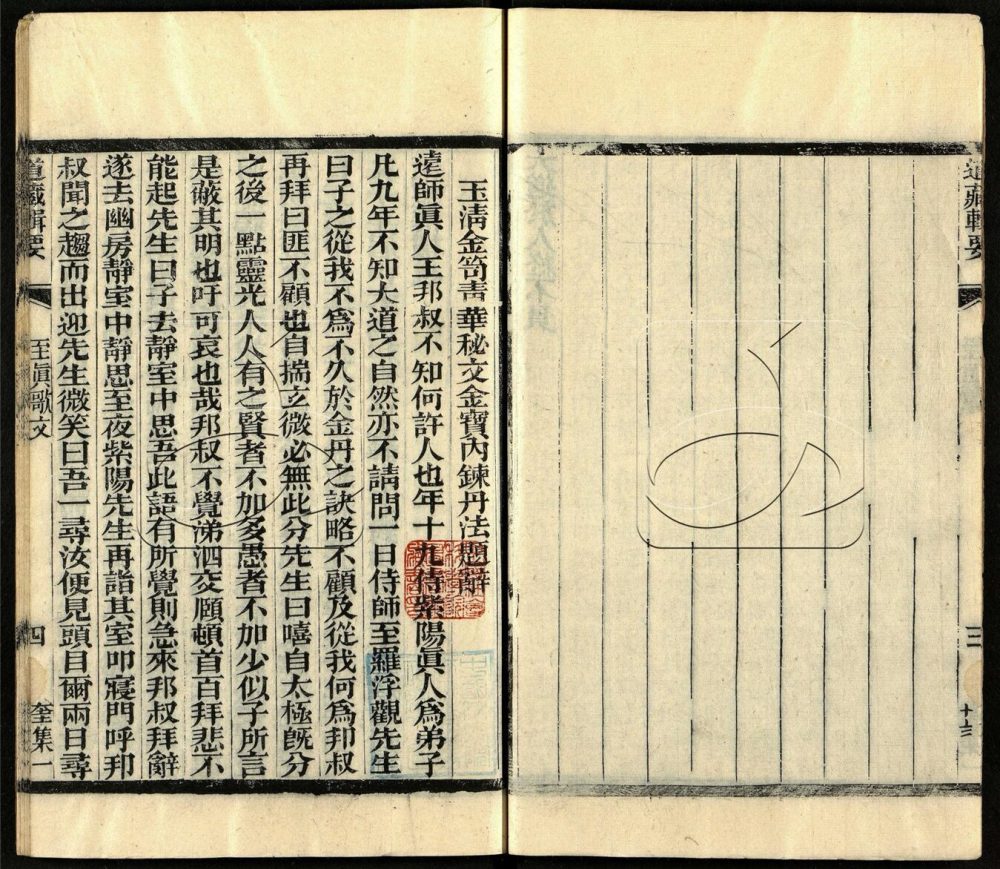 道藏輯要
三
玉淸金笥靑華秘文金寶內鍊丹法題辭
遠師眞人王邦叔不知何許人也年十九侍紫陽眞人爲弟子
凡九年不知大道之自然亦不請問一日侍師至羅浮觀先生
曰子之從我不爲不久於金丹之訣略不顧及從我何爲邦叔
再拜曰匪不顧也自揣立微必無此分先生曰嘻自太極旣分
之後一點靈光人人有之賢者不加多愚者不加少似子所言
是蔽其明也吁可哀也哉邦叔不覺涕泗交頤頓首百拜悲不
能起先生曰子去靜室中思吾此語有所覺則急來邦叔拜辭
遂去幽房靜室中靜思至夜紫陽先生再詣其室叩寢門呼邦
叔聞之趨而出迎先生微笑曰吾一尋汝便見頭目爾兩日尋
道藏輯要 至眞歌文 四 奎集一